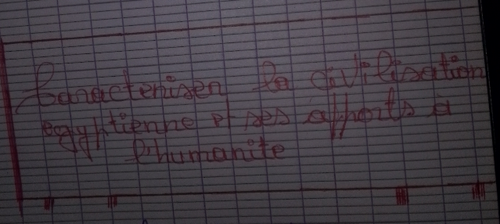 Caracteriser la civilisation
egyptienne et ses apports à
l'humanite